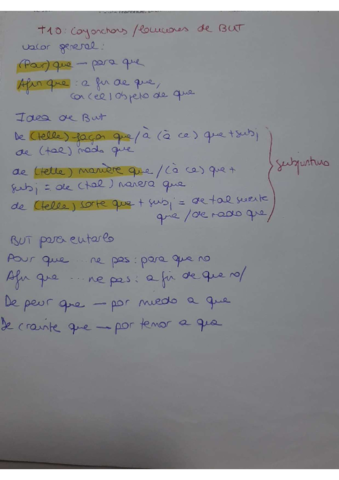 T10: Conjonctions/locuciones de BUT
Valor general:
(Pour) que — para que
Afin que : a fin de que,
con (el) objeto de que
Idea de But
De (telle) façon que / à (à ce) que + subj
de (tal) modo que
de (telle) manière que / (à ce) que +
subj = de (tal) manera que
de (telle) sorte que + subj = de tal suerte
que / de modo que
subjuntivo
BUT para evitarlo
Pour que ne pas : para que no
Afin que ... ne pas : a fin de que no/
De peur que — por miedo a que
De crainte que — por temor a que